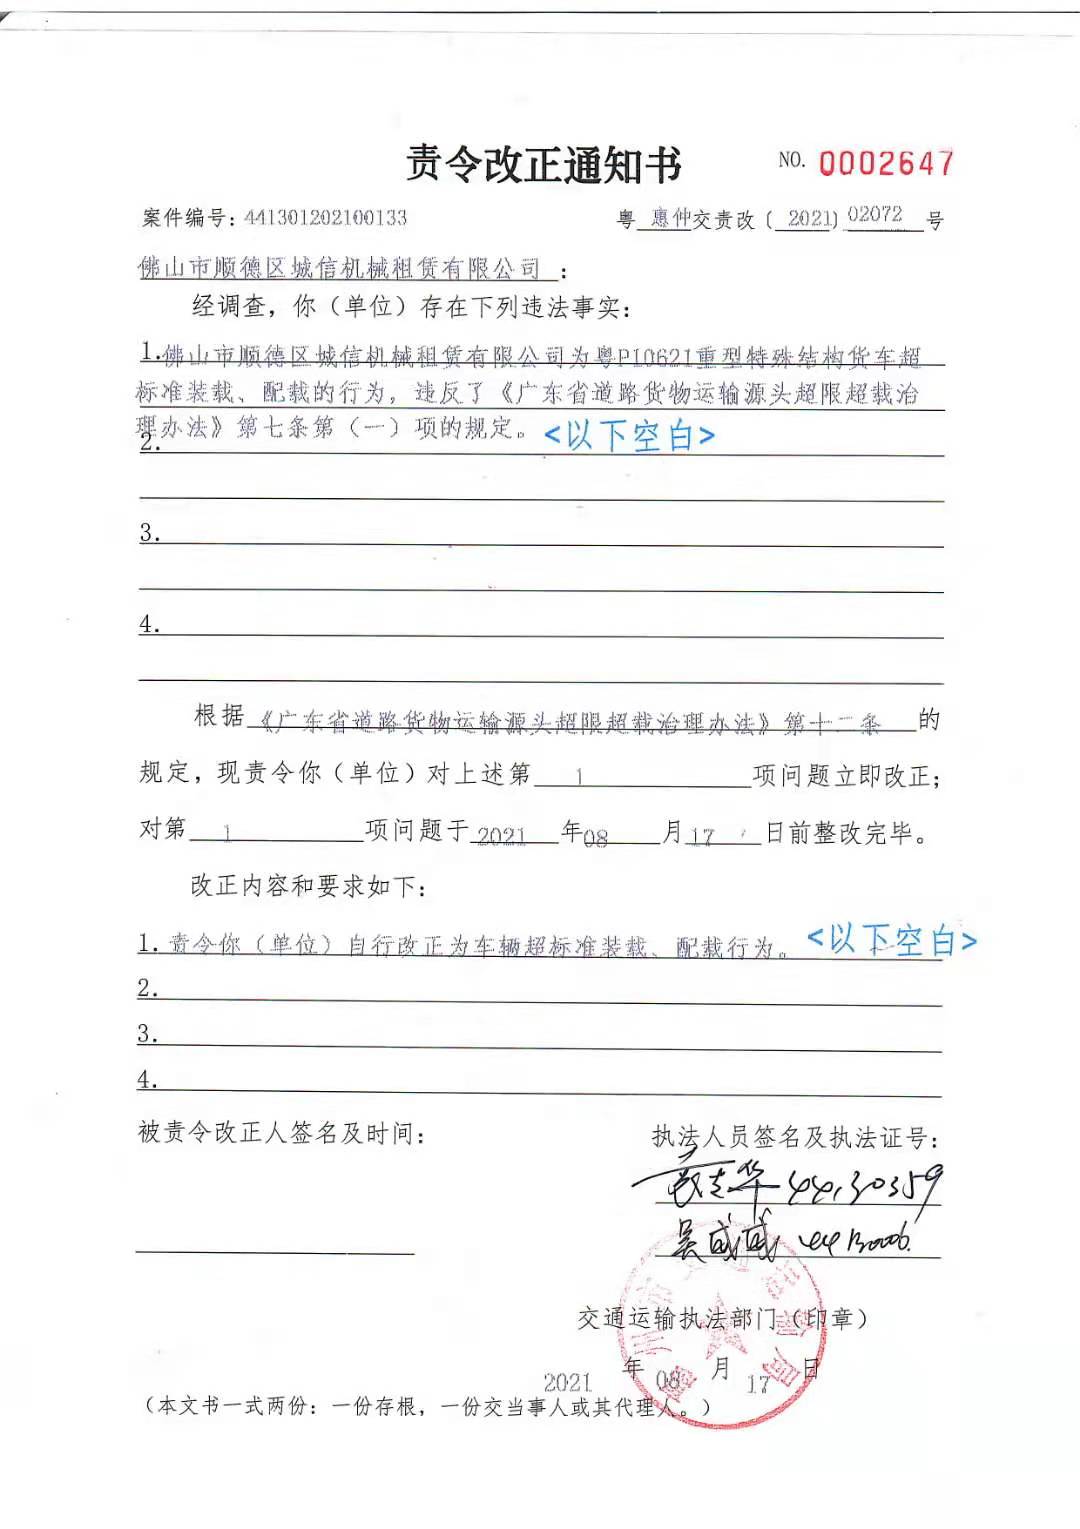 责令改正通知书
NO. 0002647
案件编号：441301202100133
粤 惠仲交责改〔 2021〕02072 号
佛山市顺德区城信机械租赁有限公司 ：
经调查，你（单位）存在下列违法事实：
1.佛山市顺德区城信机械租赁有限公司为粤P10621重型特殊结构货车超
标准装载、配载的行为，违反了《广东省道路货物运输源头超限超载治
理办法》第七条第（一）项的规定。<以下空白>
2.
3.
4.
根据《广东省道路货物运输源头超限超载治理办法》第十二条 的
规定，现责令你（单位）对上述第 1 项问题立即改正；
对第 1 项问题于 2021 年08 月17 日前整改完毕。
改正内容和要求如下：
1.责令你（单位）自行改正为车辆超标准装载、配载行为。<以下空白>
2.
3.
4.
被责令改正人签名及时间：
执法人员签名及执法证号：
交通运输执法部门（印章）
2021 年 08 月 17 日
（本文书一式两份：一份存根，一份交当事人或其代理人。）